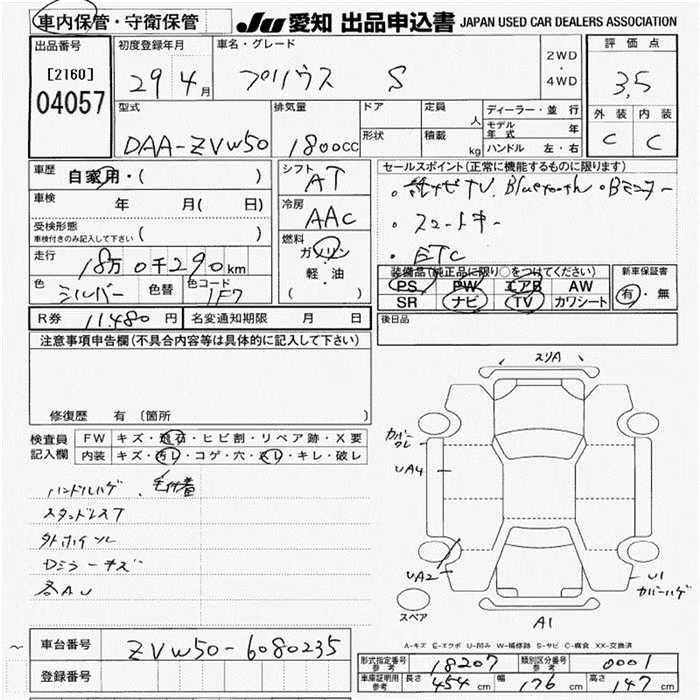 車内保管・守衛保管 JU 愛知 出品申込書 JAPAN USED CAR DEALERS ASSOCIATION
出品番号 初度登録年月 車名・グレード 2WD・4WD 評価点
[2160] 29年4月 プリウス S 3,5
04057
型式 排気量 ドア 定員 人 ディーラー・並行 外装 内装
DAA-ZVW50 1800cc 形状 積載 kg モデル年式 年 C C
ハンドル 左・右
車歴 自家用・( ) シフト AT セールスポイント(正常に機能するものに限ります)
車検 年 月( 日) 冷房 AAC ・純ナビTV、Bluetooth・Bモニター
受検形態 車検付きのみ記入して下さい ( ) ・スマートキー
走行 18万0千290km 燃料 ガソリン ・ETC
軽・油
( )
色 シルバー 色替 色コード 1F7
装備品(純正品に限り○をつけてください) 新車保証書
PS PW エアB AW 有・無
SR ナビ TV カワシート
R券 11,480円 名変通知期限 月 日 後日品
注意事項申告欄(不具合内容等は具体的に記入して下さい)
修復歴 有 〔箇所
検査員記入欄 FW キズ・飛石・ヒビ割・リペア跡・X要
内装 キズ・汚レ・コゲ・穴・スレ・キレ・破レ
ハンドルハゲ、毛付着
スタッドレスT
外ホイル
Dミラーキズ
各AU
スリA
カバーワレ
UA4
UA2
U1
カバーハゲ
スペア
A1
A-キズ E-エクボ U-凹み W-補修跡 S-サビ C-腐食 XX-交換済
車台番号 ZVW50-6080235
登録番号
形式指定番号 参考 18207 類別区分番号 参考 0001
車庫証明用 参考 長さ 454cm 幅 176cm 高さ 147cm